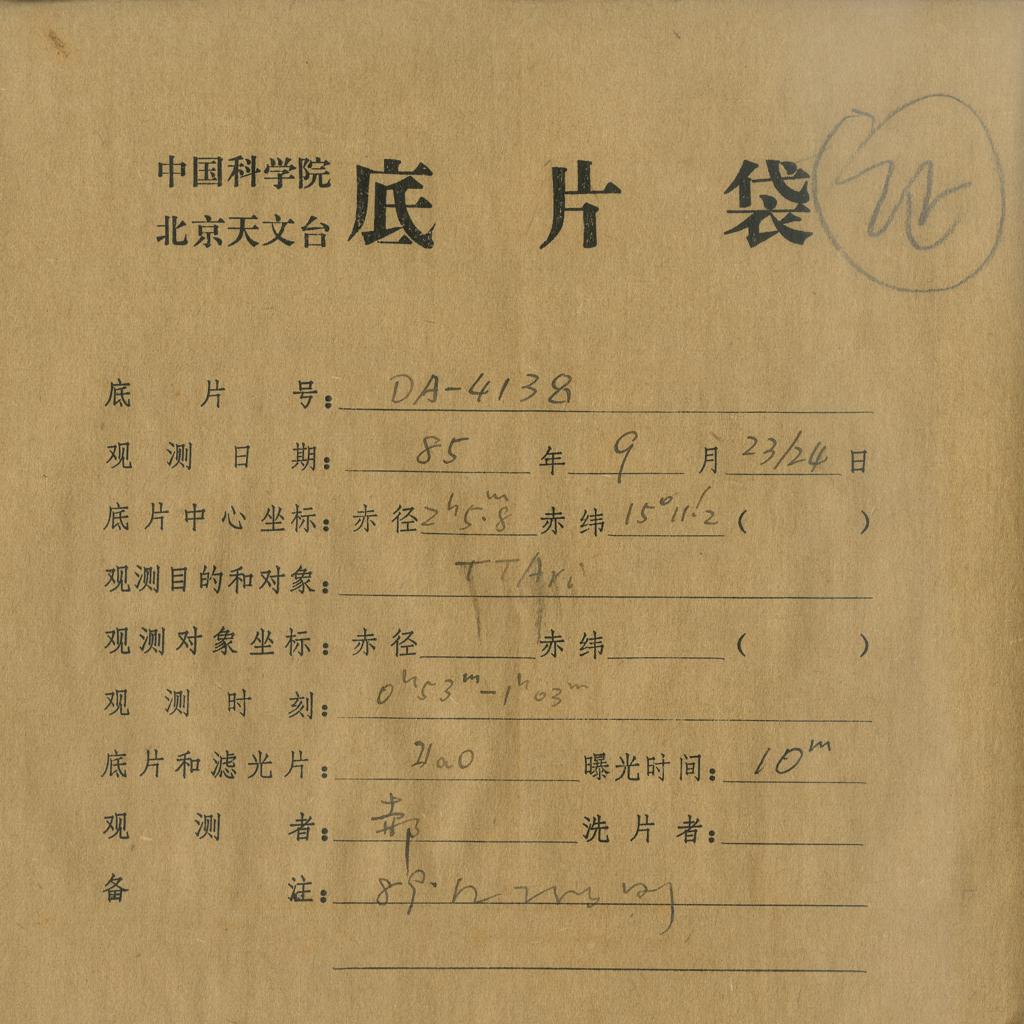 中国科学院
北京天文台
底片袋
证
底片号: DA-4138
观测日期: 85 年 9 月 23/24 日
底片中心坐标: 赤径 2ʰ5ᵐ.8 赤纬 15°11′.2 ( )
观测目的和对象: TTAri
观测对象坐标: 赤径 赤纬 ( )
观测时刻: 0ʰ53ᵐ-1ʰ03ᵐ
底片和滤光片: IIaO 曝光时间: 10ᵐ
观测者: 郝 洗片者:
备注: 89.12